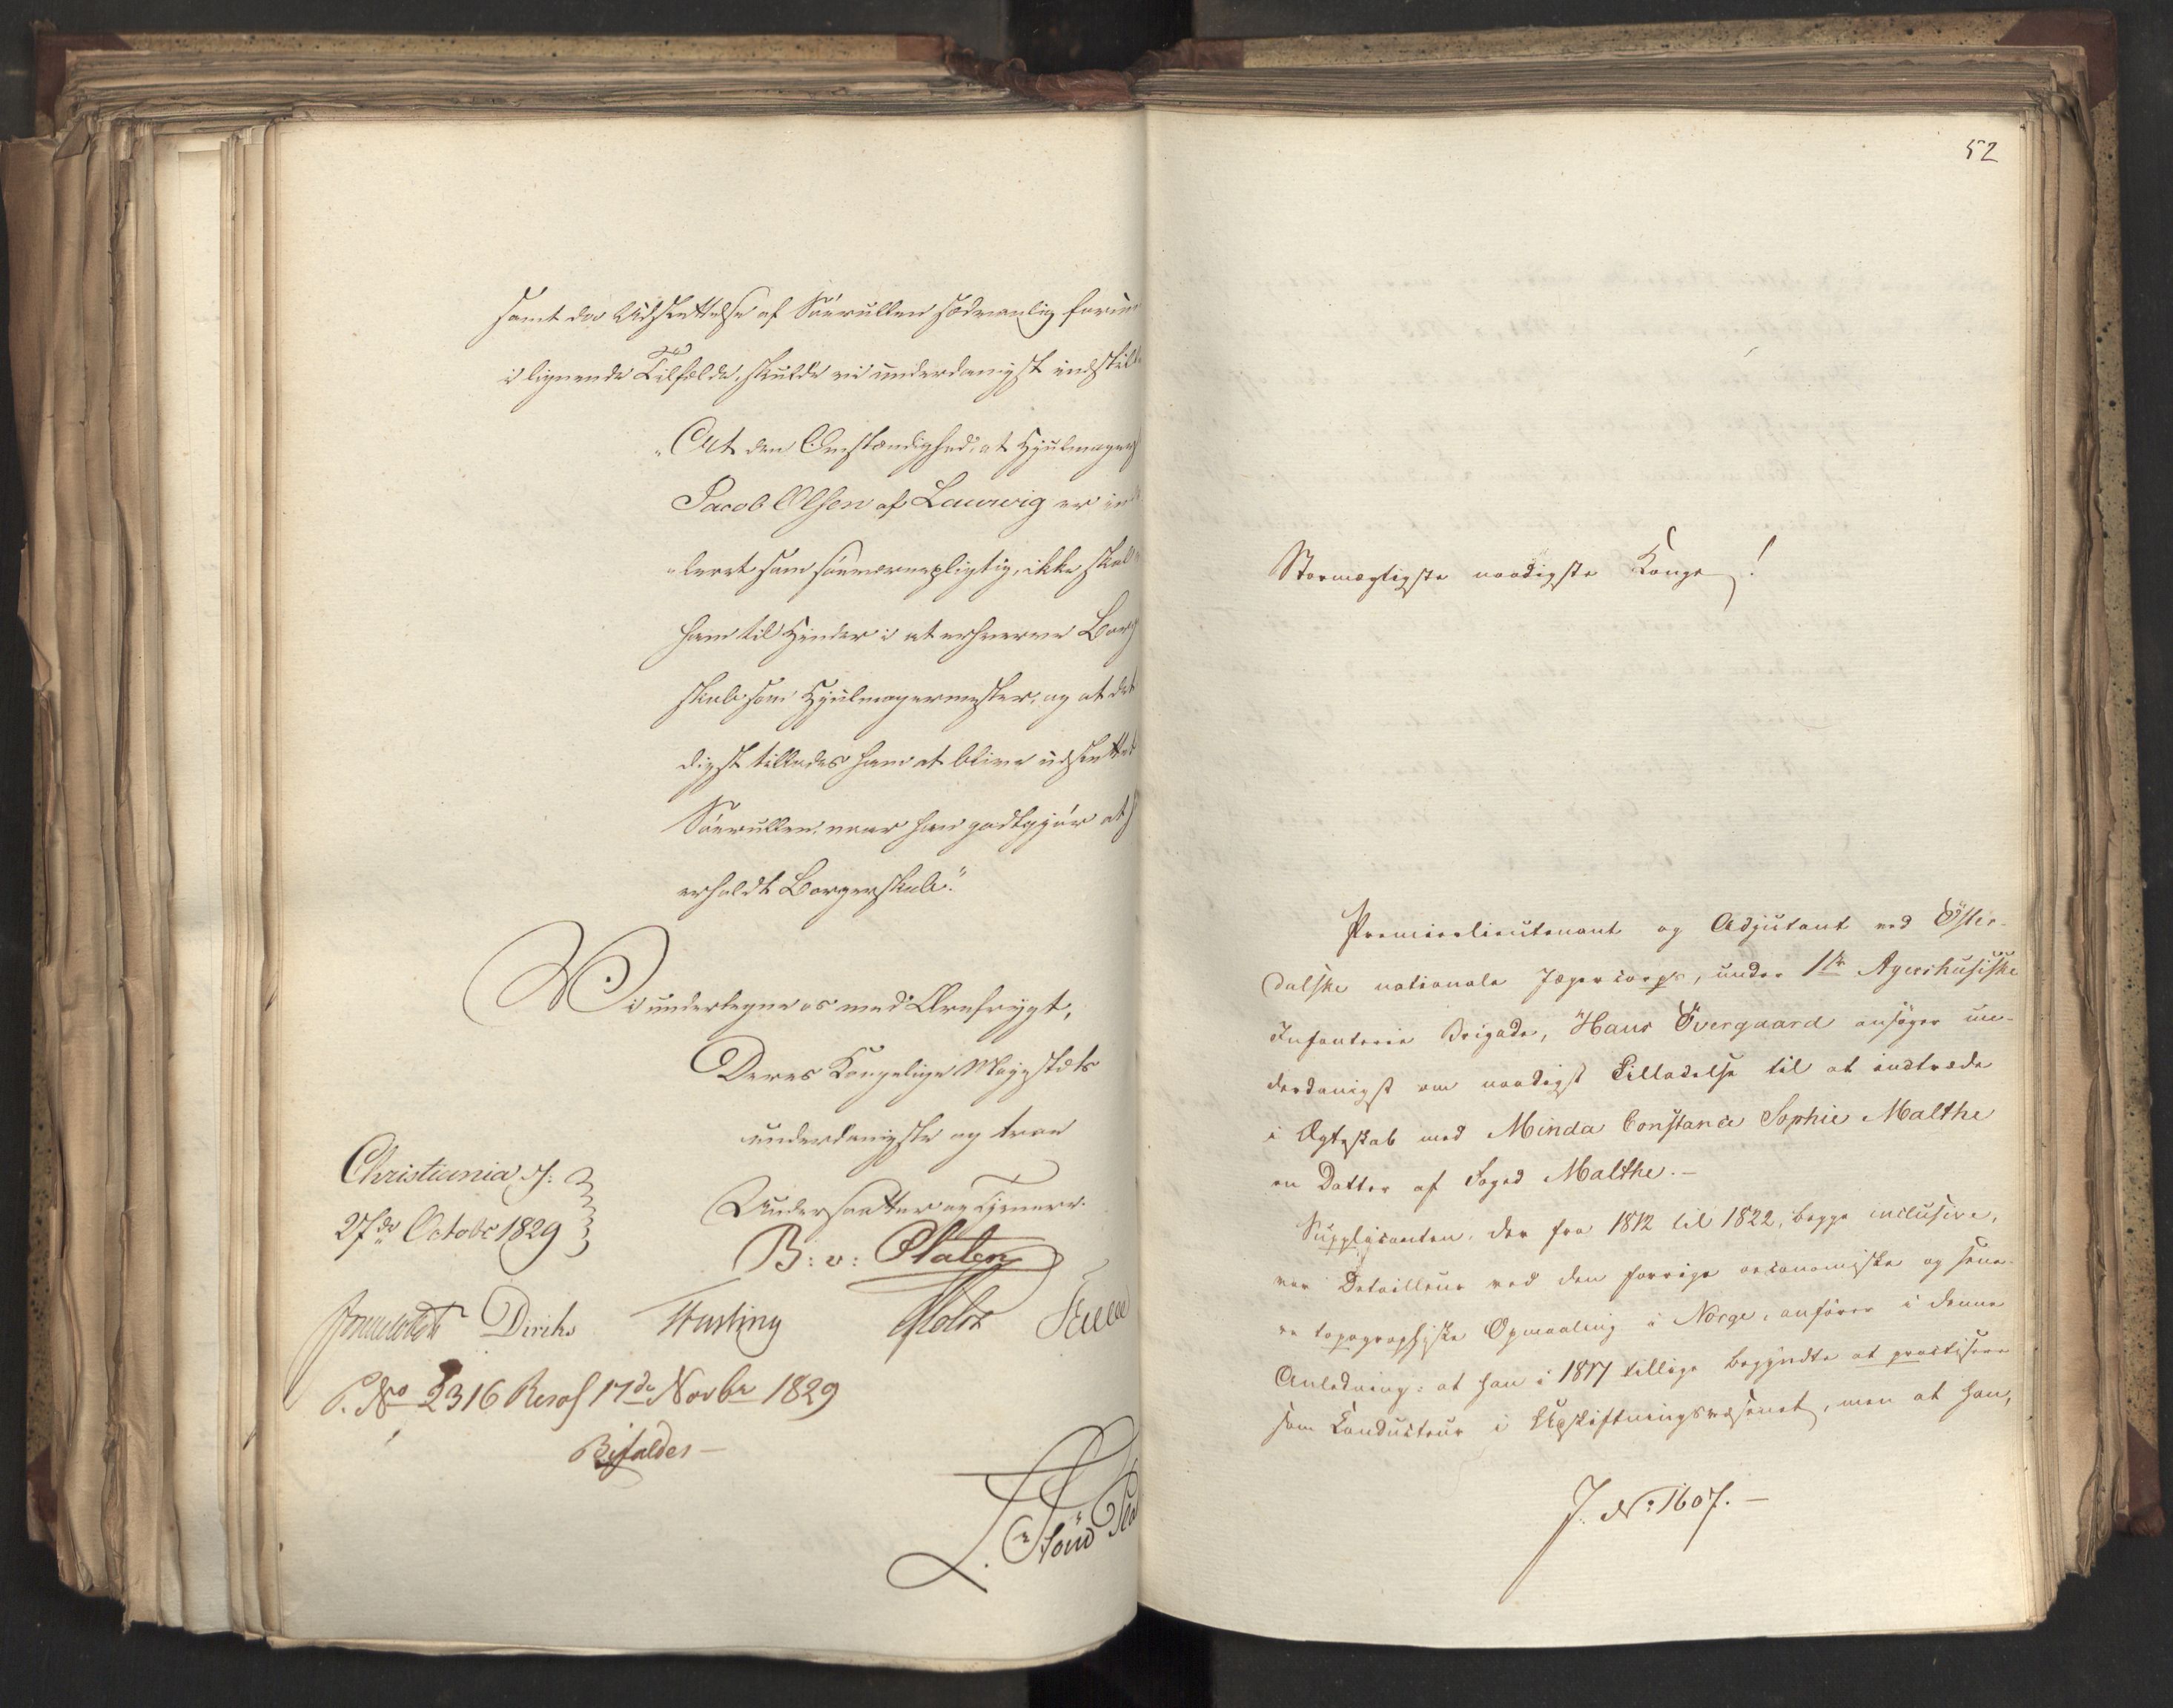 samt da Udslettelse af Søerullen sædvanlig
i lignende Tilfælde, skulde vi underdanigst indstille
"At den Omstændighed, at Hjulmager
Jacob Olsen af Laurvig er
"leret som søeværnepligtig, ikke skal
ham til Hinder i at erhverve Borg
skab som Hjulmagermester, og at det
digst tillades ham at blive udslettet
Søerullen, naar han godtgjør at
erholdt Borgerskab."
Vi undertegne os med Ærefrygt,
Deres Kongelige Majestæts
underdanigste og troe
Undersaatter og Tjenere.
Christiania d:
27de Octobr 1829
B: v: Platen
Diriks
Fasting
P. No 2316 Resol 17de Novbr 1829
Bifaldes —
52
Stormægtigste naadigste Konge!
Premierlieutenant og Adjutant ved Öster-
dalske nationale Jægercorps, under 1ste Agershusiske
Infanterie Brigade, Hans Övergaard ansøger un-
derdanigst om naadigst Tilladelse til at indtræde
i Ægteskab med Minda Constance Sophie Malthe
en Datter af Foged Malthe. —
Supplicanten, der fra 1812 til 1822, begge inclusive,
var Detailleur ved den forrige oeconomiske og sene-
re topographiske Opmaaling i Norge, anfører i denne
Anledning: at han i 1817 tillige begyndte at practisere
som Conducteur i Udskiftningsvæsenet, men at han,
J. No 1607. —